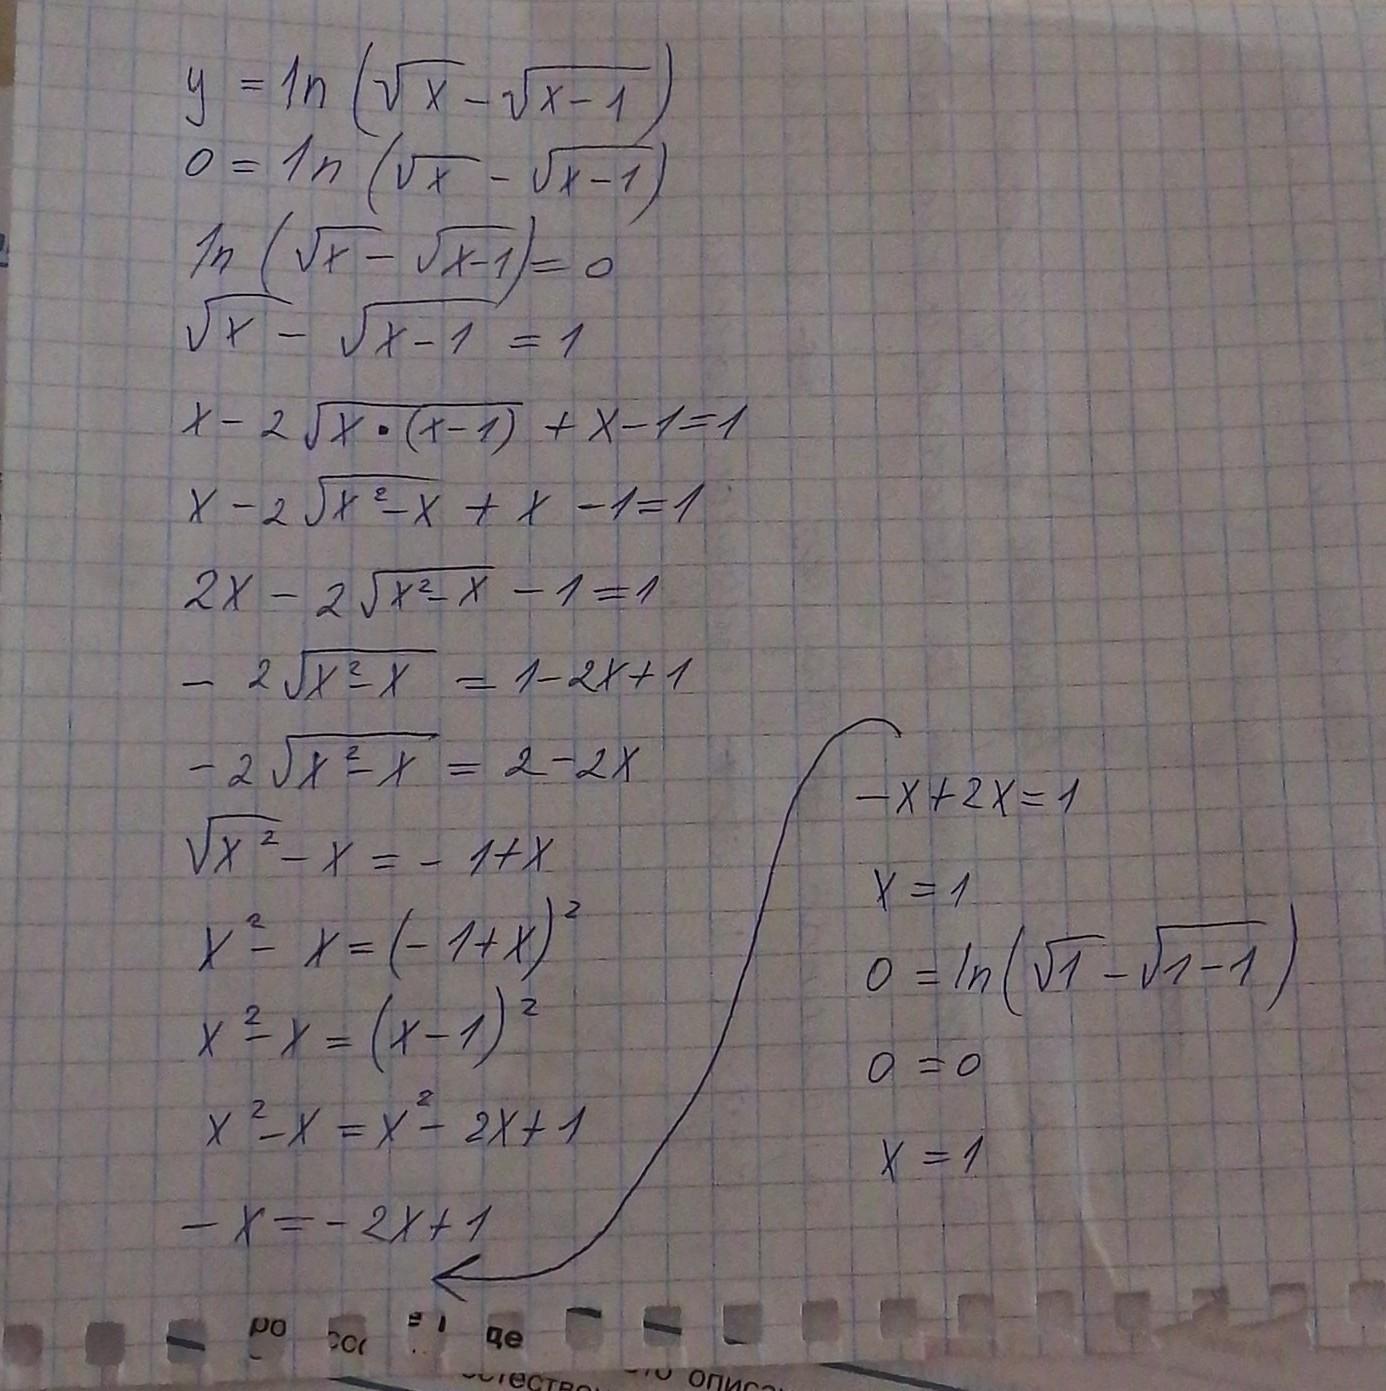 y = ln (√x - √(x-1))
0 = ln (√x - √(x-1))
ln (√x - √(x-1)) = 0
√x - √(x-1) = 1
x - 2√(x·(x-1)) + x - 1 = 1
x - 2√(x²-x) + x - 1 = 1
2x - 2√(x²-x) - 1 = 1
- 2√(x²-x) = 1 - 2x + 1
- 2√(x²-x) = 2 - 2x
√x² - x = - 1 + x
x² - x = (- 1 + x)²
x² - x = (x - 1)²
x² - x = x² - 2x + 1
- x = - 2x + 1
- x + 2x = 1
x = 1
0 = ln (√1 - √(1-1))
0 = 0
x = 1
ро
де